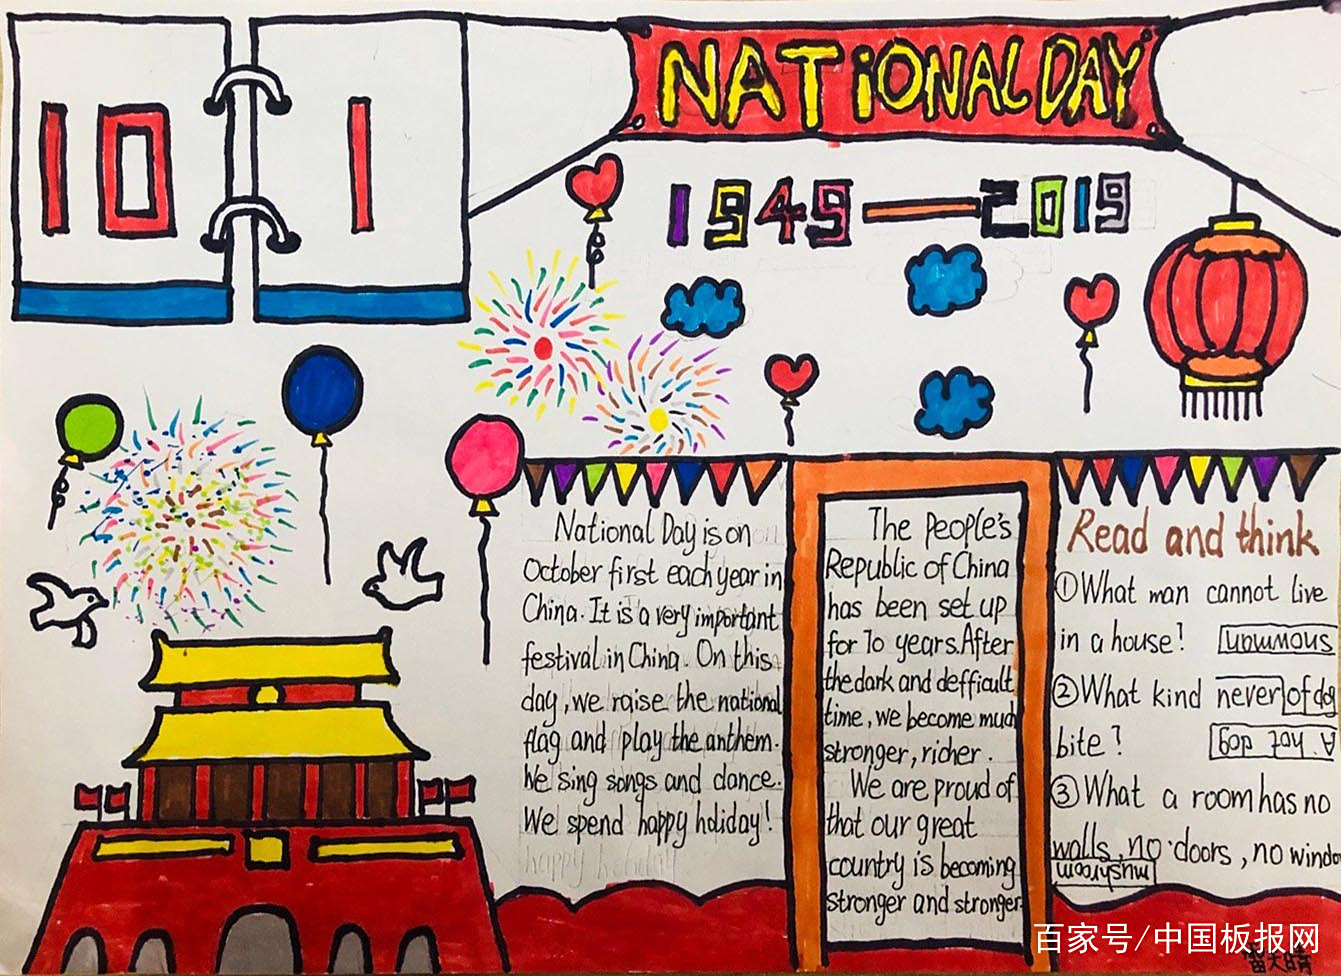 10 1
NATIONAL DAY
1949—2019
National Day is on
October first each year in
China. It is a very important
festival in China. On this
day, we raise the national
flag and play the anthem.
We sing songs and dance.
We spend happy holiday!
The people's
Republic of China
has been set up
for 70 years. After
the dark and defficult
time, we become much
stronger, richer.
We are proud of
that our great
country is becoming
stronger and stronger.
Read and think
①What man cannot live
in a house?
snowman
②What kind never of dog
bite?
A hot dog
③What a room has no
walls, no doors, no window
mushroom
百家号/中国板报网